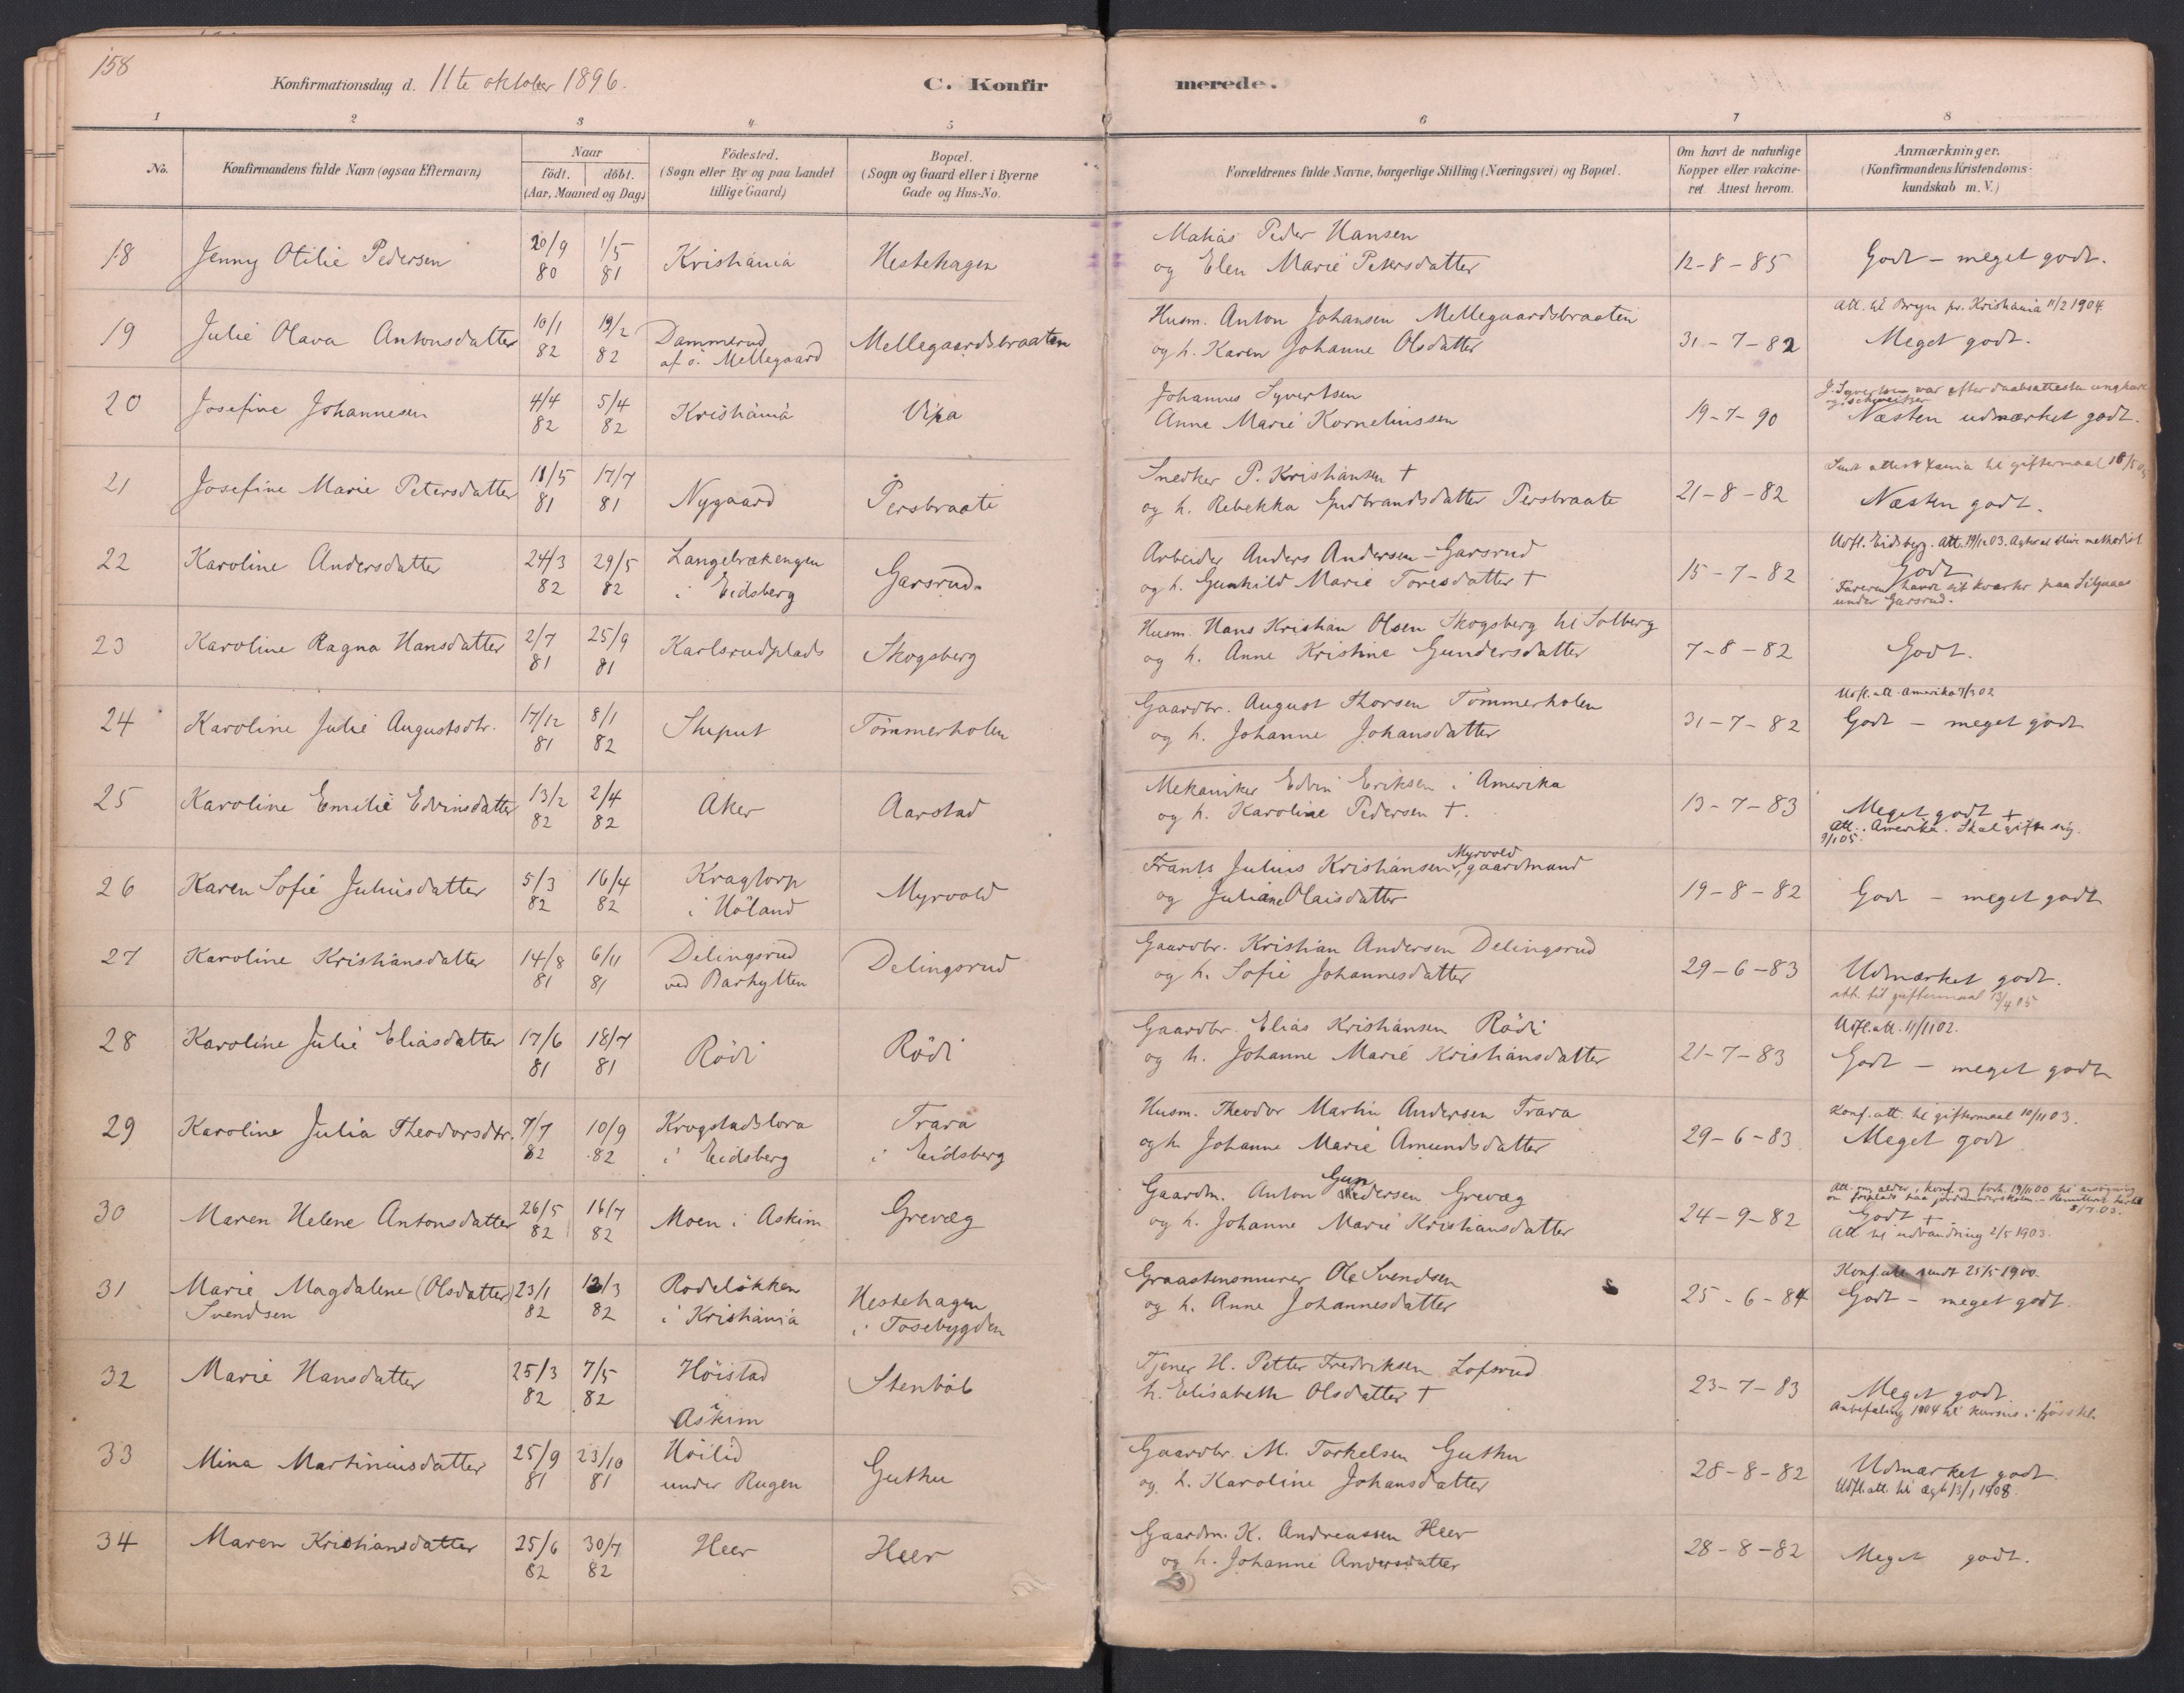 158
Konfirmationsdag d. 11te oktober 1896.
C. Konfir
merede.
1 2 3 4 5 6 7 8
No.
Konfirmandens fulde Navn (ogsaa Efternavn)
Naar
födt. döbt.
(Aar, Maaned og Dag)
Födested.
(Sogn eller By og paa Landet
tillige Gaard)
Bopæl.
(Sogn og Gaard eller i Byerne
Gade og Hus-No.
Forældrenes fulde Navne, borgerlige Stilling (Næringsvei) og Bopæl.
Om havt de naturlige
Kopper eller vakcine-
ret Attest herom.
Anmærkninger.
(Konfirmandens Kristendoms-
kundskab m. V.)
18 Jenny Otilie Pedersen 20/9 80 1/5 81 Kristiania Hestehagen
Matias Peder Hansen
og Elen Marie Petersdatter
12-8-85
Godt - meget godt.
19 Julie Olava Antonsdatter 10/1 82 19/2 82 Dammerud
af ö. Mellegaard
Mellegaardsbraaten
Husm. Anton Johansen Mellegaardsbraaten
og h. Karen Johanne Olsdatter
31-7-82
Att. til Bryn pr. Kristiania 11/2 1904.
Meget godt.
20 Josefine Johannesen 4/4 82 5/4 82 Kristiania Vixa
Johannes Syvertsen
Anne Marie Kornelinssen
19-7-90
J. Syvertsen var efter daabsattesten ungkarl
og schweitzer
Næsten udmærket godt.
21 Josefine Marie Petersdatter 11/5 81 17/7 81 Nygaard Persbraate
Snedker P. Kristiansen †
og h. Rebekka Gudbrandsdatter Persbraate
21-8-82
Sendt attest Xania til giftermaal
Næsten godt.
22 Karoline Andersdatter 24/3 82 29/5 82 Langebrækengen
i Eidsberg
Garsrud.
Arbeider Anders Andersen - Garsrud
og h. Gunhild Marie Toresdatter †
15-7-82
Udfl. Eidsberg. Att. 19/12 03. Agter at blive methodist
Godt
Faderen havde sit kvarter paa Liljaas
under Garsrud.
23 Karoline Ragna Hansdatter 2/7 81 25/9 81 Karlsrudplads Skogsberg
Husm. Hans Kristian Olsen Skogsberg til Solberg
og h. Anne Kristine Gundersdatter
7-8-82
Godt.
24 Karoline Julie Augustsdtr. 17/12 81 8/1 82 Stuput Tömmerholen
Gaardbr. August Thorsen Tömmerholen
og h. Johanne Johansdatter
31-7-82
Udfl. att. Amerika 7/3 02
Godt - meget godt
25 Karoline Emilie Edvinsdatter 13/2 82 2/4 82 Aker Aarstad
Mekaniker Edvin Eriksen i Amerika
og h. Karoline Pedersen †.
13-7-83
Meget godt +
Att. Amerika. Skal gifte sig.
9/1 05.
26 Karen Sofie Juliusdatter 5/3 82 16/4 82 Kragtorp
i Höland
Myrvold
Myrvold
Frants Julius Kristiansen, gaardmand
og Juliane Olaisdatter
19-8-82
Godt - meget godt
27 Karoline Kristiansdatter 14/8 81 6/11 81 Delingsrud
ved Barhytten
Delingsrud
Gaardbr. Kristian Andersen Delingsrud
og h. Sofie Johannesdatter
29-6-83
Udmærket godt.
att. til giftermaal 13/4 05
28 Karoline Julie Eliasdatter 17/6 81 18/7 81 Rödi Rödi
Gaardbr. Elias Kristiansen Rödi
og h. Johanne Marie Kristiansdatter
21-7-83
Udfl. att. 11/11 02.
Godt - meget godt
29 Karoline Julia Theodorsdtr. 7/7 82 10/9 82 Krogstadslora
i Eidsberg
Trara
i Eidsberg
Husm. Theodor Martin Andersen Trara
og h. Johanne Marie Amundsdatter
29-6-83
Konf. att. til giftermaal 10/11 03.
Meget godt
30 Maren Helene Antonsdatter 26/5 82 16/7 82 Moen i Askim Grevæg
Gun
Gaardm. Anton Pedersen Grevæg
og h. Johanne Marie Kristiansdatter
24-9-82
Att. om alder, konf. og forh. 19/11 00 til ansögning
om friplads paa jordmoderskolen.
8/7 03.
Godt +
Att. til udvandring 2/5 1903.
31 Marie Magdalene (Olsdatter)
Svendsen
23/1 82 12/3 82 Rodelökken
i Kristiania
Hestehagen
i Tosebygden
Graastensmurer Ole Svendsen
og h. Anne Johannesdatter
25-6-84
Konf. att. sendt 25/5 1900.
Godt - meget godt.
32 Marie Hansdatter 25/3 82 7/5 82 Höistad
i
Askim
Stenböl
Tjener H. Petter Fredriksen Lofsrud
h. Elisabeth Olsdatter †
23-7-83
Meget godt
Anbefaling 1904 til kursus i fjösstel.
33 Mina Martiniusdatter 25/9 81 23/10 81 Höilid
under Rugen
Guthu
Gaardbr. M. Torkelsen Guthu
og h. Karoline Johansdatter
28-8-82
Udmærket godt.
Udfl. att. til ægt. 13/1 1908.
34 Maren Kristiansdatter 25/6 82 30/7 82 Heer Heer
Gaardm. K. Andreassen Heer
og h. Johanne Andersdatter
28-8-82
Meget godt.